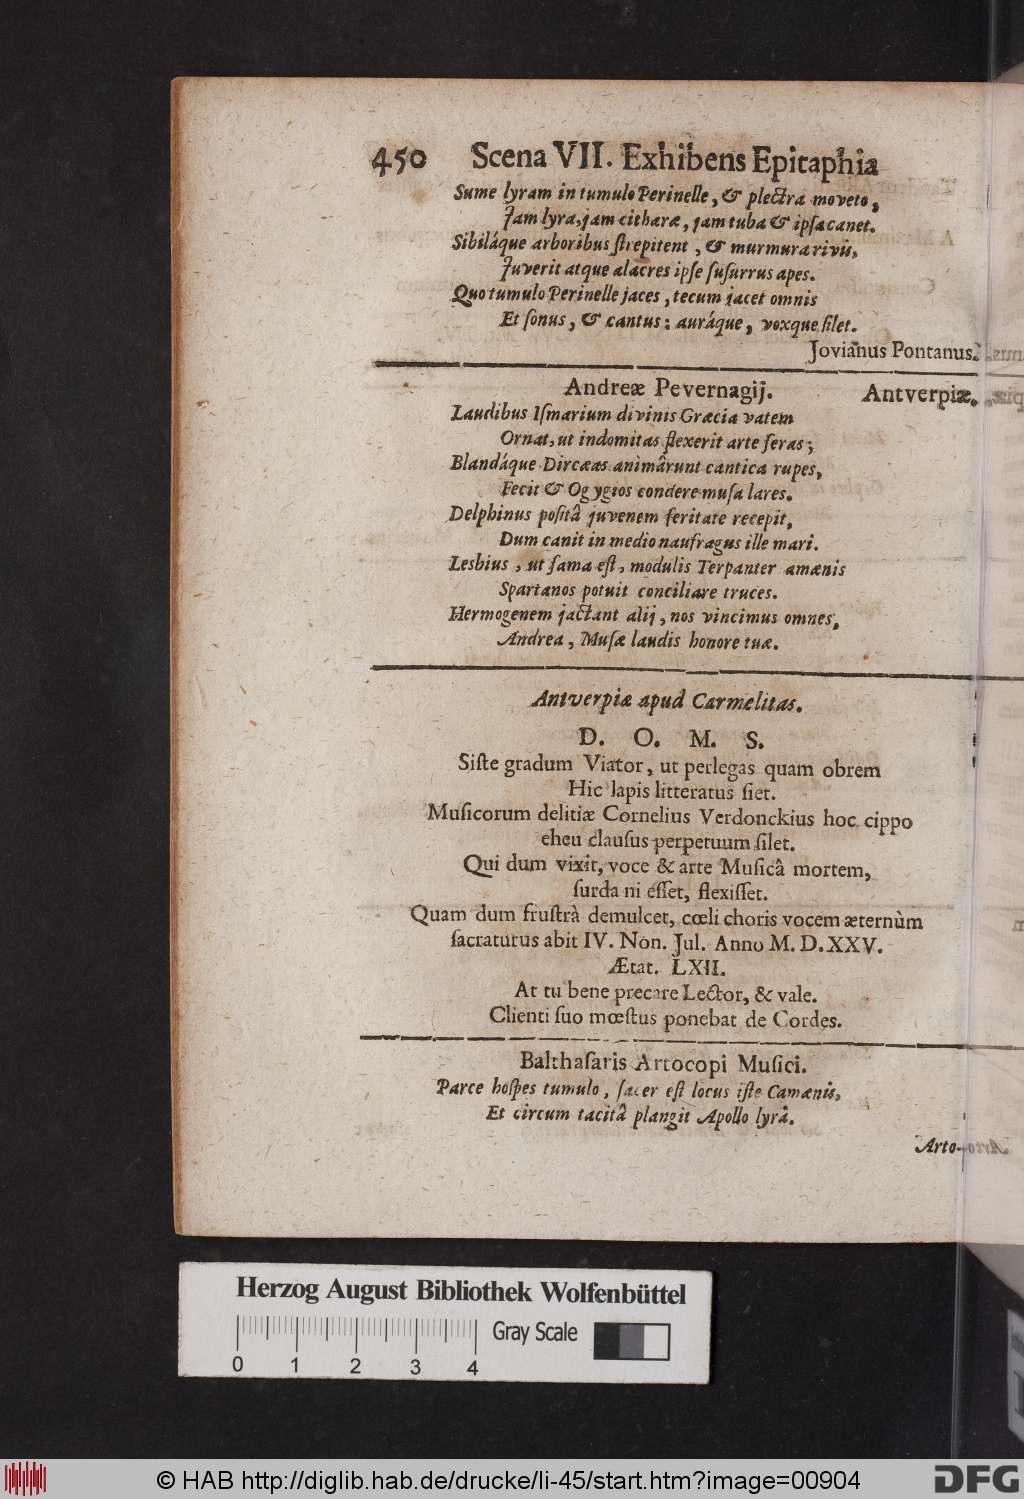 450 Scena VII. Exhibens Epitaphia
Sume lyram in tumulo Perinelle, & plectra moveto,
Jam lyra, jam citharæ, jam tuba & ipsa canet.
Sibiláque arboribus strepitent, & murmura rivis,
Juverit atque alacres ipse susurrus apes.
Quo tumulo Perinelle jaces, tecum jacet omnis
Et sonus, & cantus: auráque, voxque silet.
Jovianus Pontanus.
Andreæ Pevernagij. Antverpiæ.
Laudibus Ismarium divinis Græcia vatem
Ornat, ut indomitas flexerit arte feras;
Blandáque Dircæas animârunt cantica rupes,
Fecit & Ogygios condere musa lares.
Delphinus positâ juvenem feritate recepit,
Dum canit in medio naufragus ille mari.
Lesbius, ut fama est, modulis Terpanter amænis
Spartanos potuit conciliare truces.
Hermogenem jactant alij, nos vincimus omnes,
Andrea, Musæ laudis honore tuæ.
Antverpiæ apud Carmelitas.
D. O. M. S.
Siste gradum Viator, ut perlegas quam obrem
Hic lapis litteratus siet.
Musicorum delitiæ Cornelius Verdonckius hoc cippo
eheu clausus perpetuum silet.
Qui dum vixit, voce & arte Musicâ mortem,
surda ni esset, flexisset.
Quam dum frustrà demulcet, cœli choris vocem æternùm
sacraturus abit IV. Non. Jul. Anno M. D. XXV.
Ætat. LXII.
At tu bene precare Lector, & vale.
Clienti suo mœstus ponebat de Cordes.
Balthasaris Artocopi Musici.
Parce hospes tumulo, sacer est locus iste Camænis,
Et circum tacitâ plangit Apollo lyrâ.
Arto-
Herzog August Bibliothek Wolfenbüttel
Gray Scale
0 1 2 3 4
© HAB http://diglib.hab.de/drucke/li-45/start.htm?image=00904
DFG